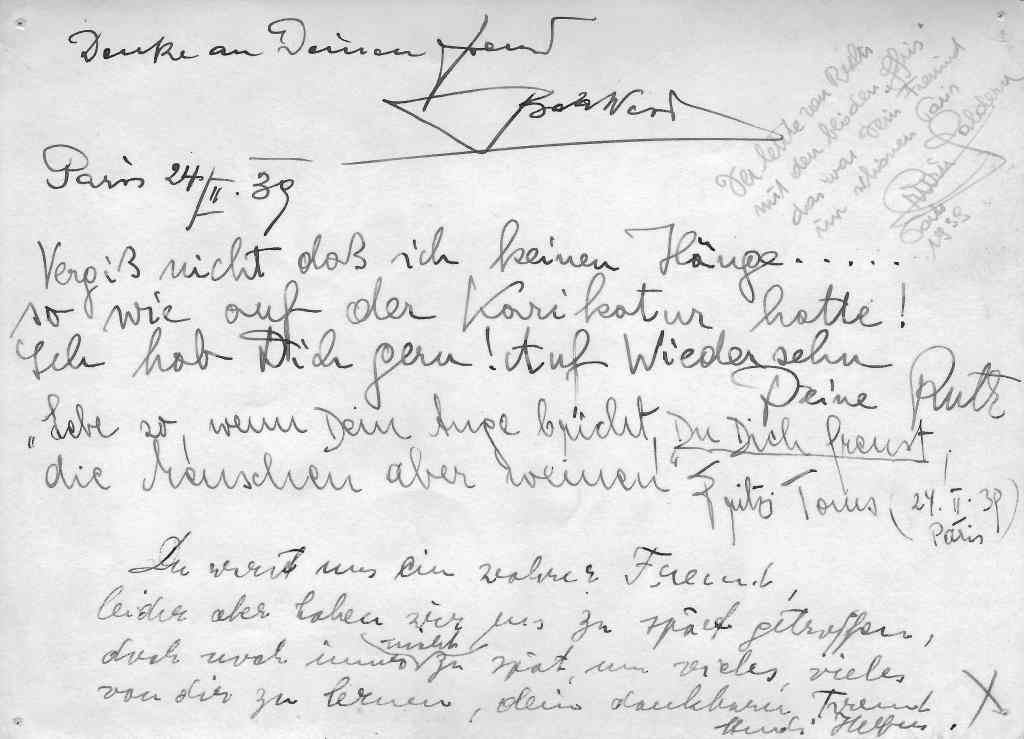 Denke an Deinen Freund
Paris 24/II. 39
Der letzte von Rechts
mit den beiden
das war Dein Freund
im schönen Paris
Paris
1939
Vergiß nicht daß ich keinen Hänge.....
so wie auf der Karikatur hatte!
Ich hab Dich gern! Auf Wiedersehn
Deine Ruth
"Lebe so, wenn Dein Auge bricht, Du Dich freust,
die Menschen aber weinen!"
Fritzi (24. II. 39)
Paris
Du warst uns ein wahrer Freund,
leider aber haben wir uns zu spät getroffen,
doch noch immer nicht zu spät, um vieles, vieles
von dir zu lernen, dein dankbarer Freund